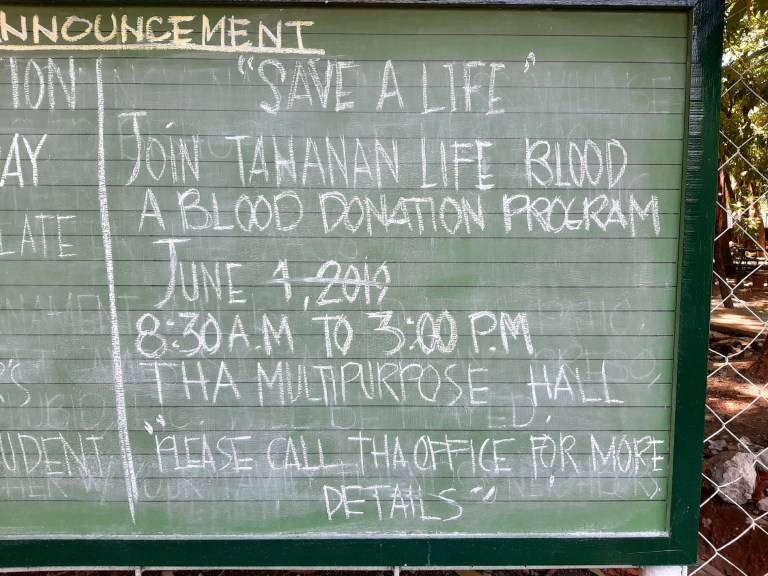 ANNOUNCEMENT
ION
AY
LATE
R'S
UDENT
"SAVE A LIFE"
JOIN TAHANAN LIFE BLOOD
A BLOOD DONATION PROGRAM
JUNE 1, 2019
8:30 A.M TO 3:00 P.M
THA MULTIPURPOSE HALL
"PLEASE CALL THA OFFICE FOR MORE
DETAILS"